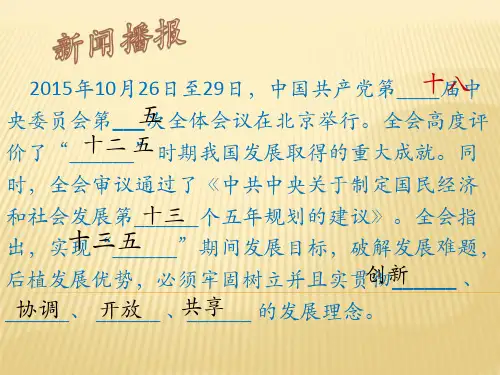 新闻播报
2015年10月26日至29日，中国共产党第十八届中
央委员会第五次全体会议在北京举行。全会高度评
价了“十二五”时期我国发展取得的重大成就。同
时，全会审议通过了《中共中央关于制定国民经济
和社会发展第十三个五年规划的建议》。全会指
出，实现“十三五”期间发展目标，破解发展难题，
后植发展优势，必须牢固树立并且实贯彻创新、
协调、开放、共享的发展理念。